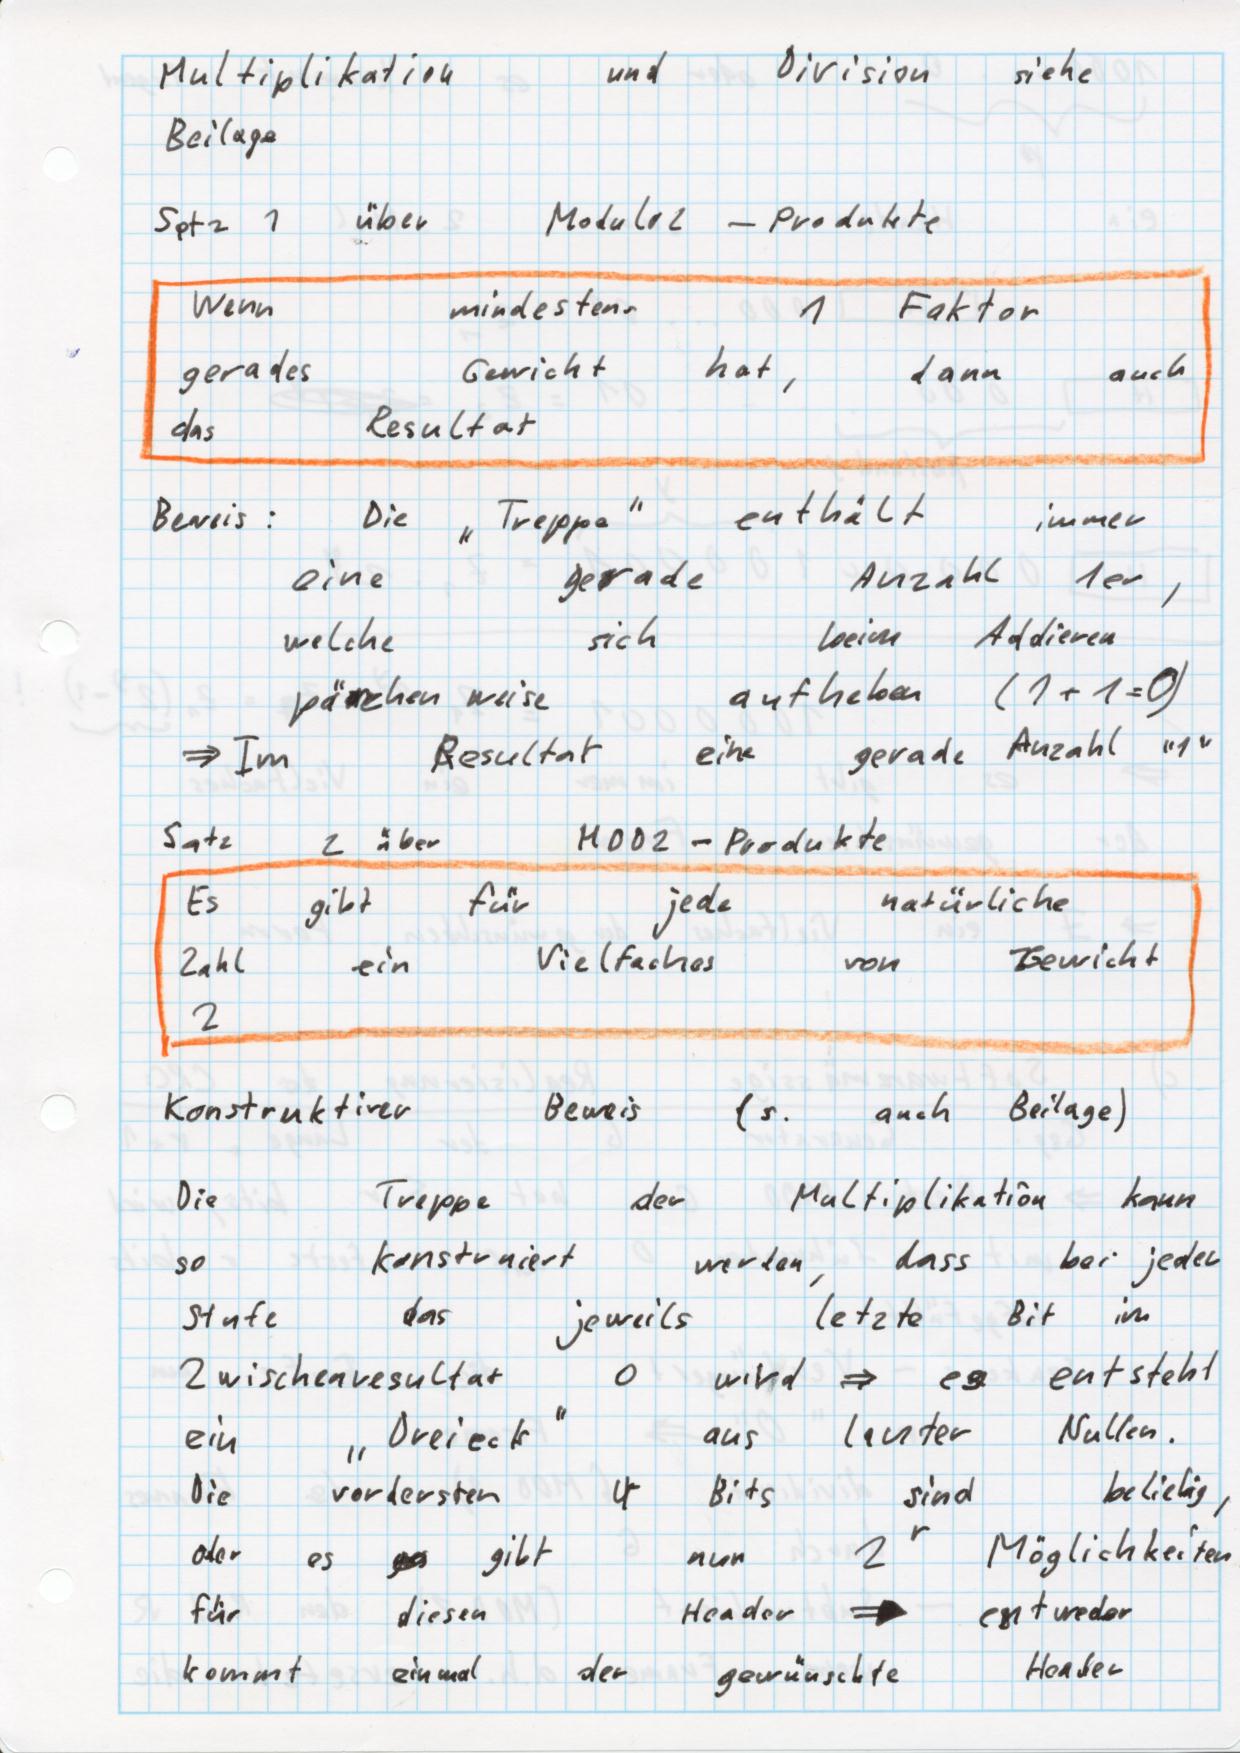 Multiplikation und Division siehe
Beilage
Satz 1 über Modulo2 - Produkte
Wenn mindestens 1 Faktor
gerades Gewicht hat, dann auch
das Resultat
Beweis: Die „Treppe" enthält immer
eine gerade Anzahl 1er,
welche sich beim Addieren
pärchenweise aufheben (1+1=0)
⇒ Im Resultat eine gerade Anzahl "1"
Satz 2 über MOD2 - Produkte
Es gibt für jede natürliche
Zahl ein Vielfaches von Gewicht
2
Konstruktiver Beweis (s. auch Beilage)
Die Treppe der Multiplikation kann
so konstruiert werden, dass bei jeder
Stufe das jeweils letzte Bit im
Zwischenresultat 0 wird ⇒ es entsteht
ein „Dreieck" aus lauter Nullen.
Die vordersten 4 Bits sind beliebig,
oder es gibt nur 2^r Möglichkeiten
für diesen Header ⇒ entweder
kommt einmal der gewünschte Header